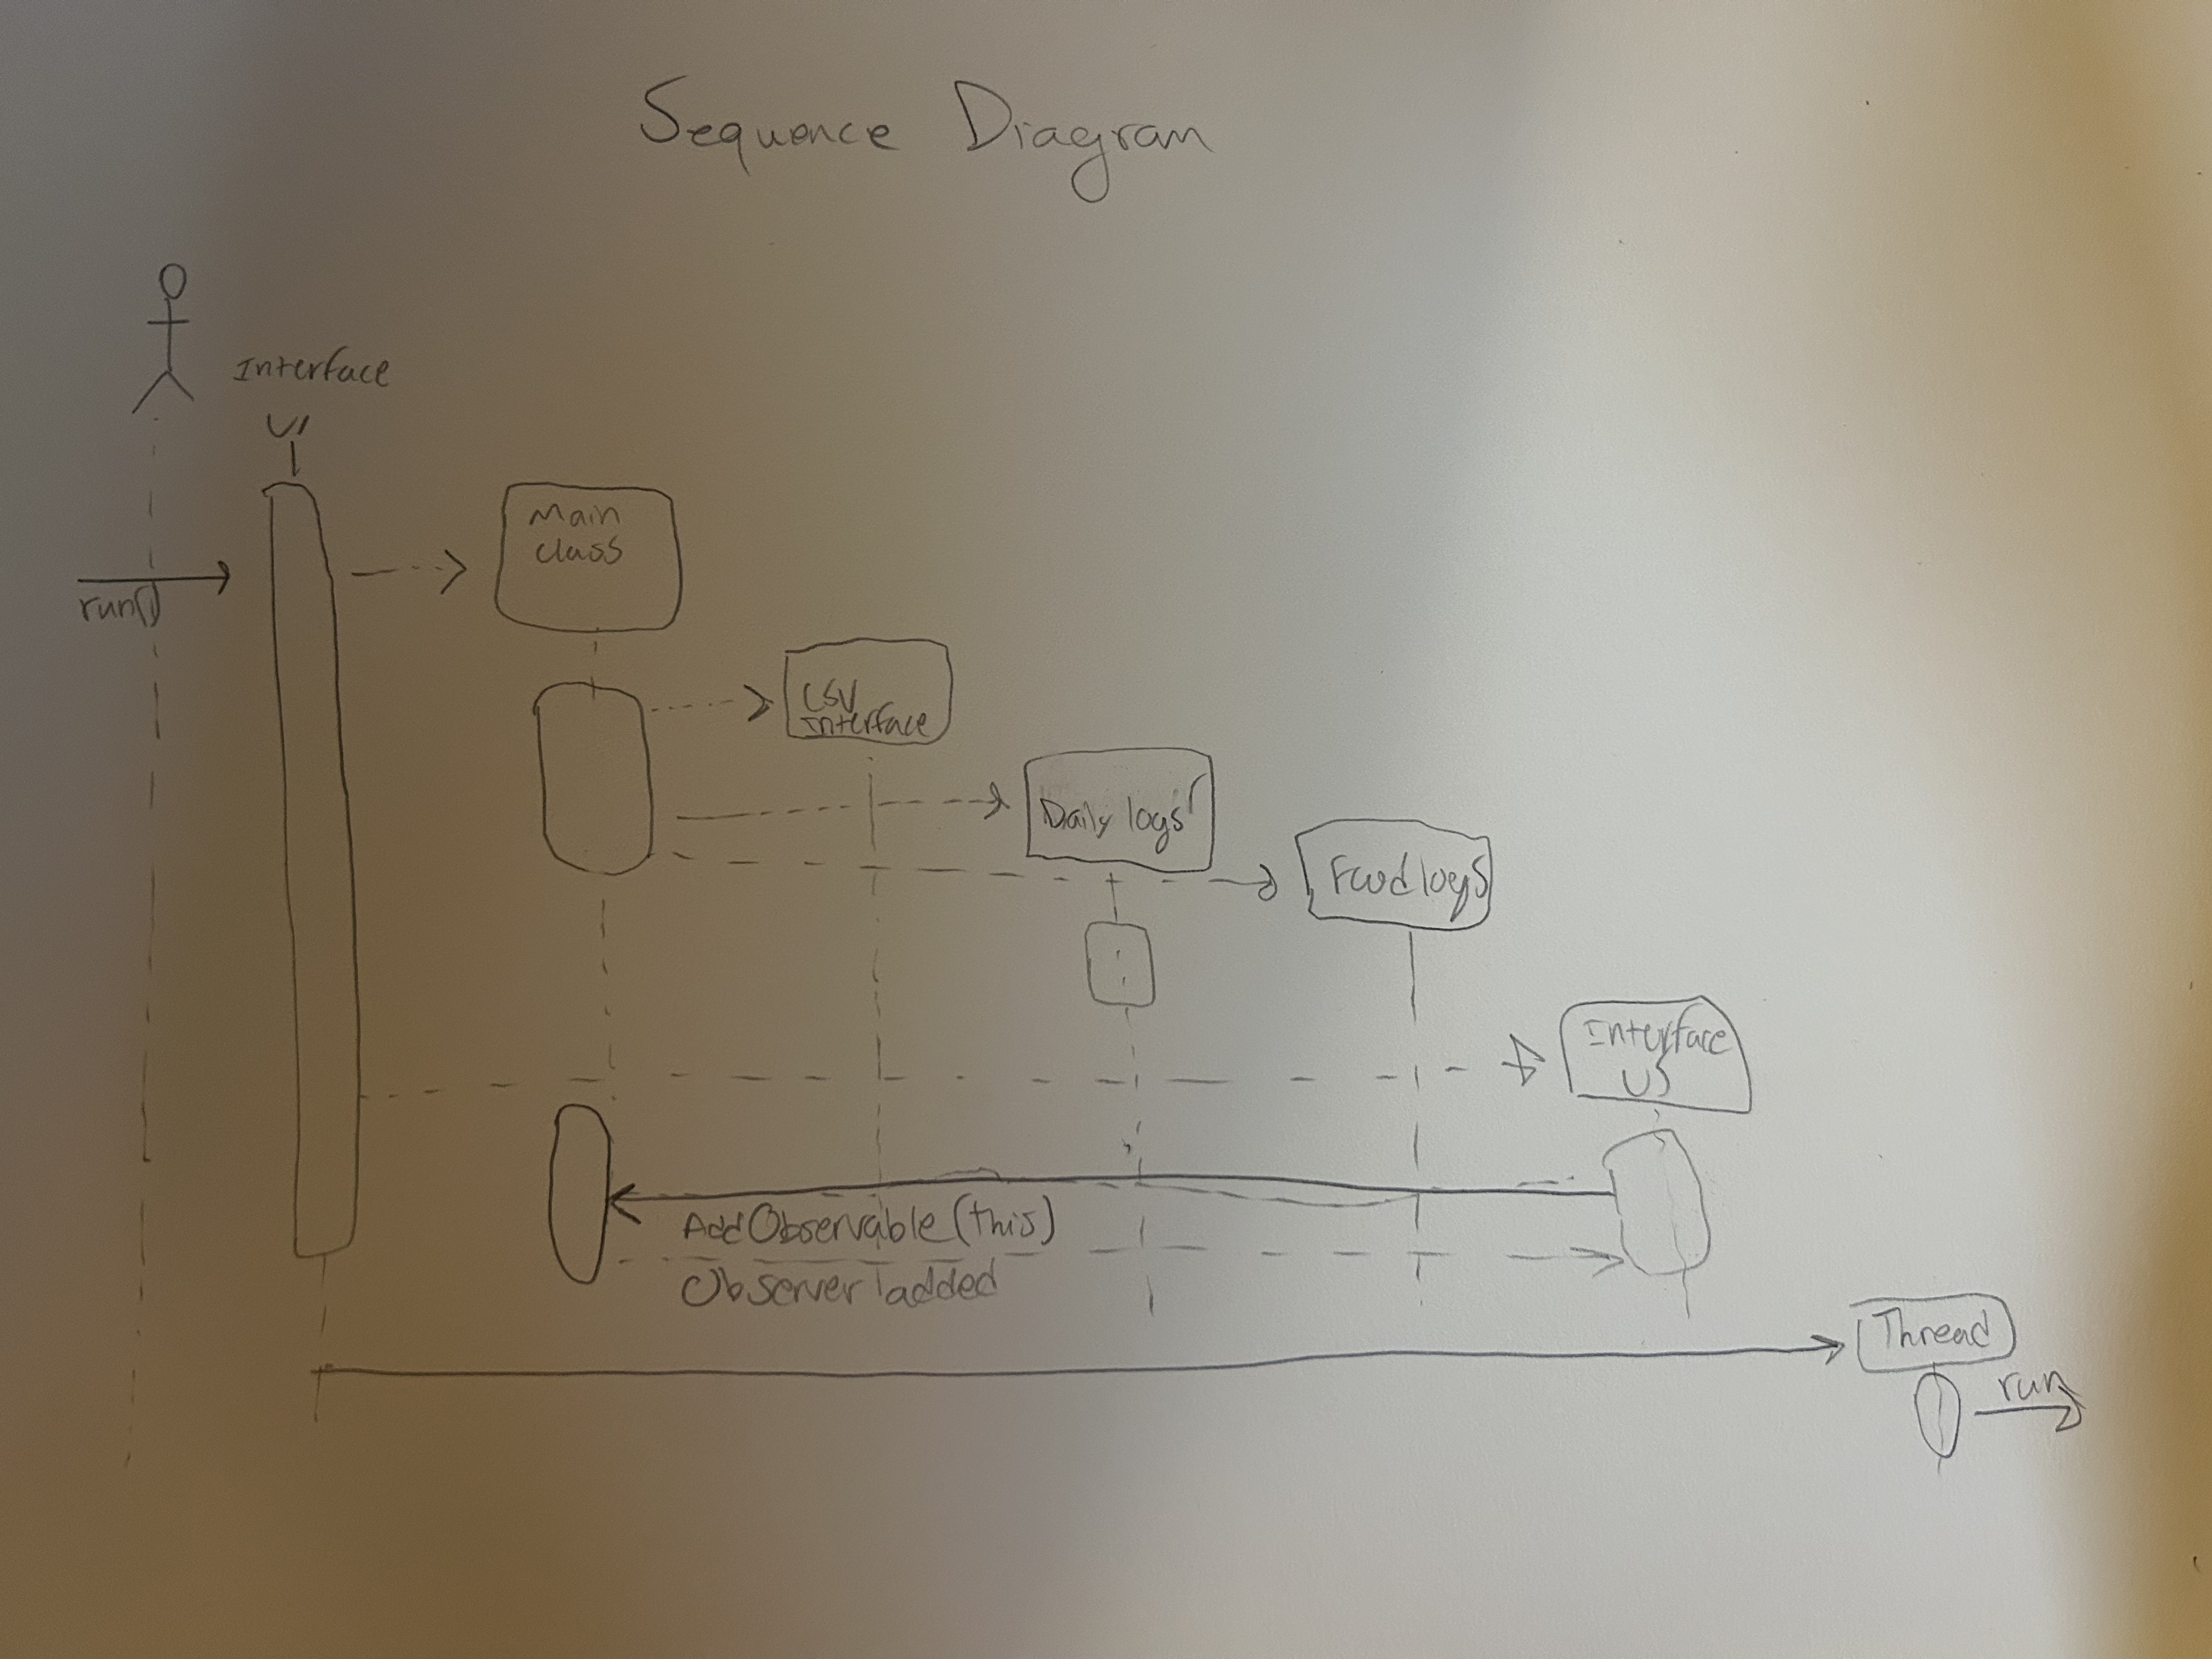 Sequence Diagram
Interface
UI
run()
Main
class
CSV
Interface
Daily logs
Food logs
Interface
US
AddObservable(this)
Observer added
Thread
run